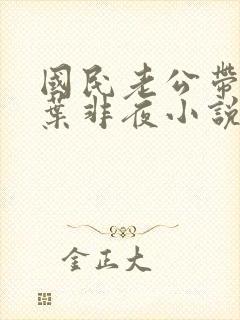 國民老公帶
葉非夜小說
金正大